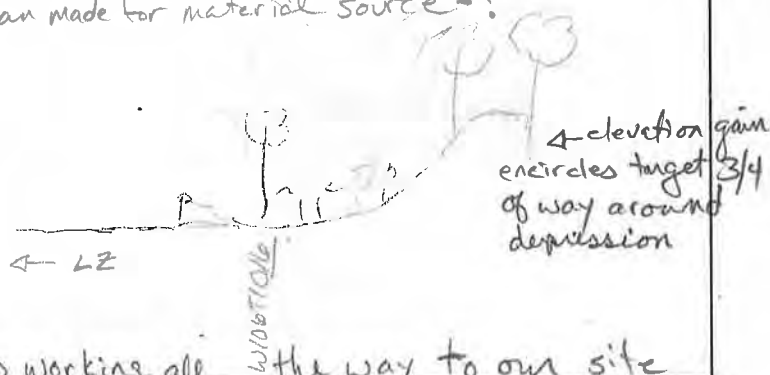 an made for material source?
← elevation gain
encircles target 3/4
of way around
depression
← LZ
working all the way to our site